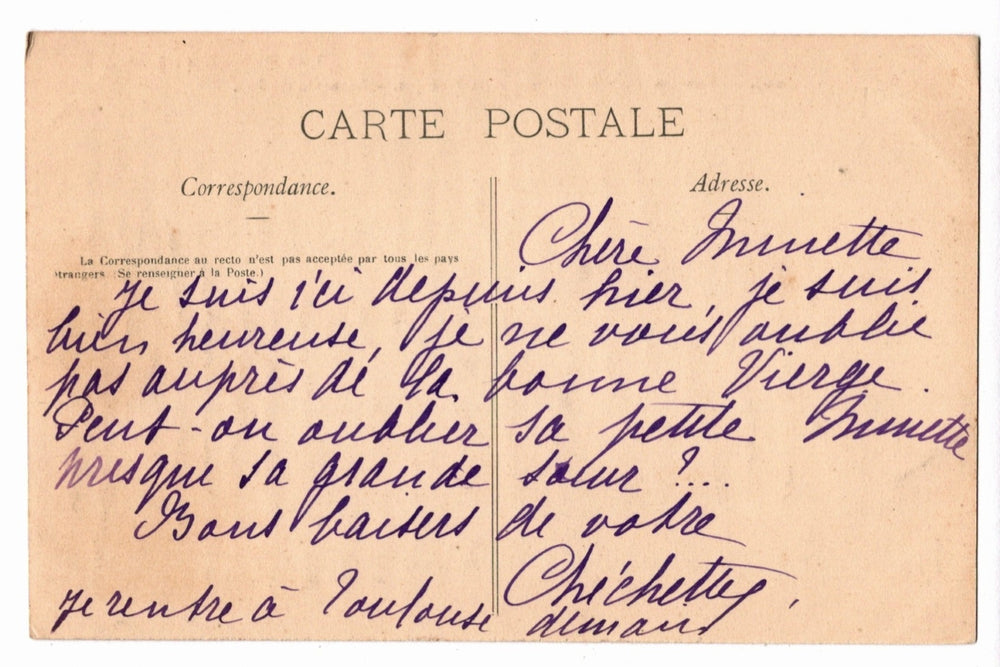 CARTE POSTALE
Correspondance.
Adresse.
La Correspondance au recto n'est pas acceptée par tous les pays
étrangers (Se renseigner à la Poste.)
Chère
Je suis ici depuis hier, je suis
bien heureuse, je ne vous oublie
pas auprès de la bonne Vierge.
Peut-on oublier sa petite
presque sa grande sœur ?...
Bons baisers de votre
Chéchette,
je rentre à Toulouse demain